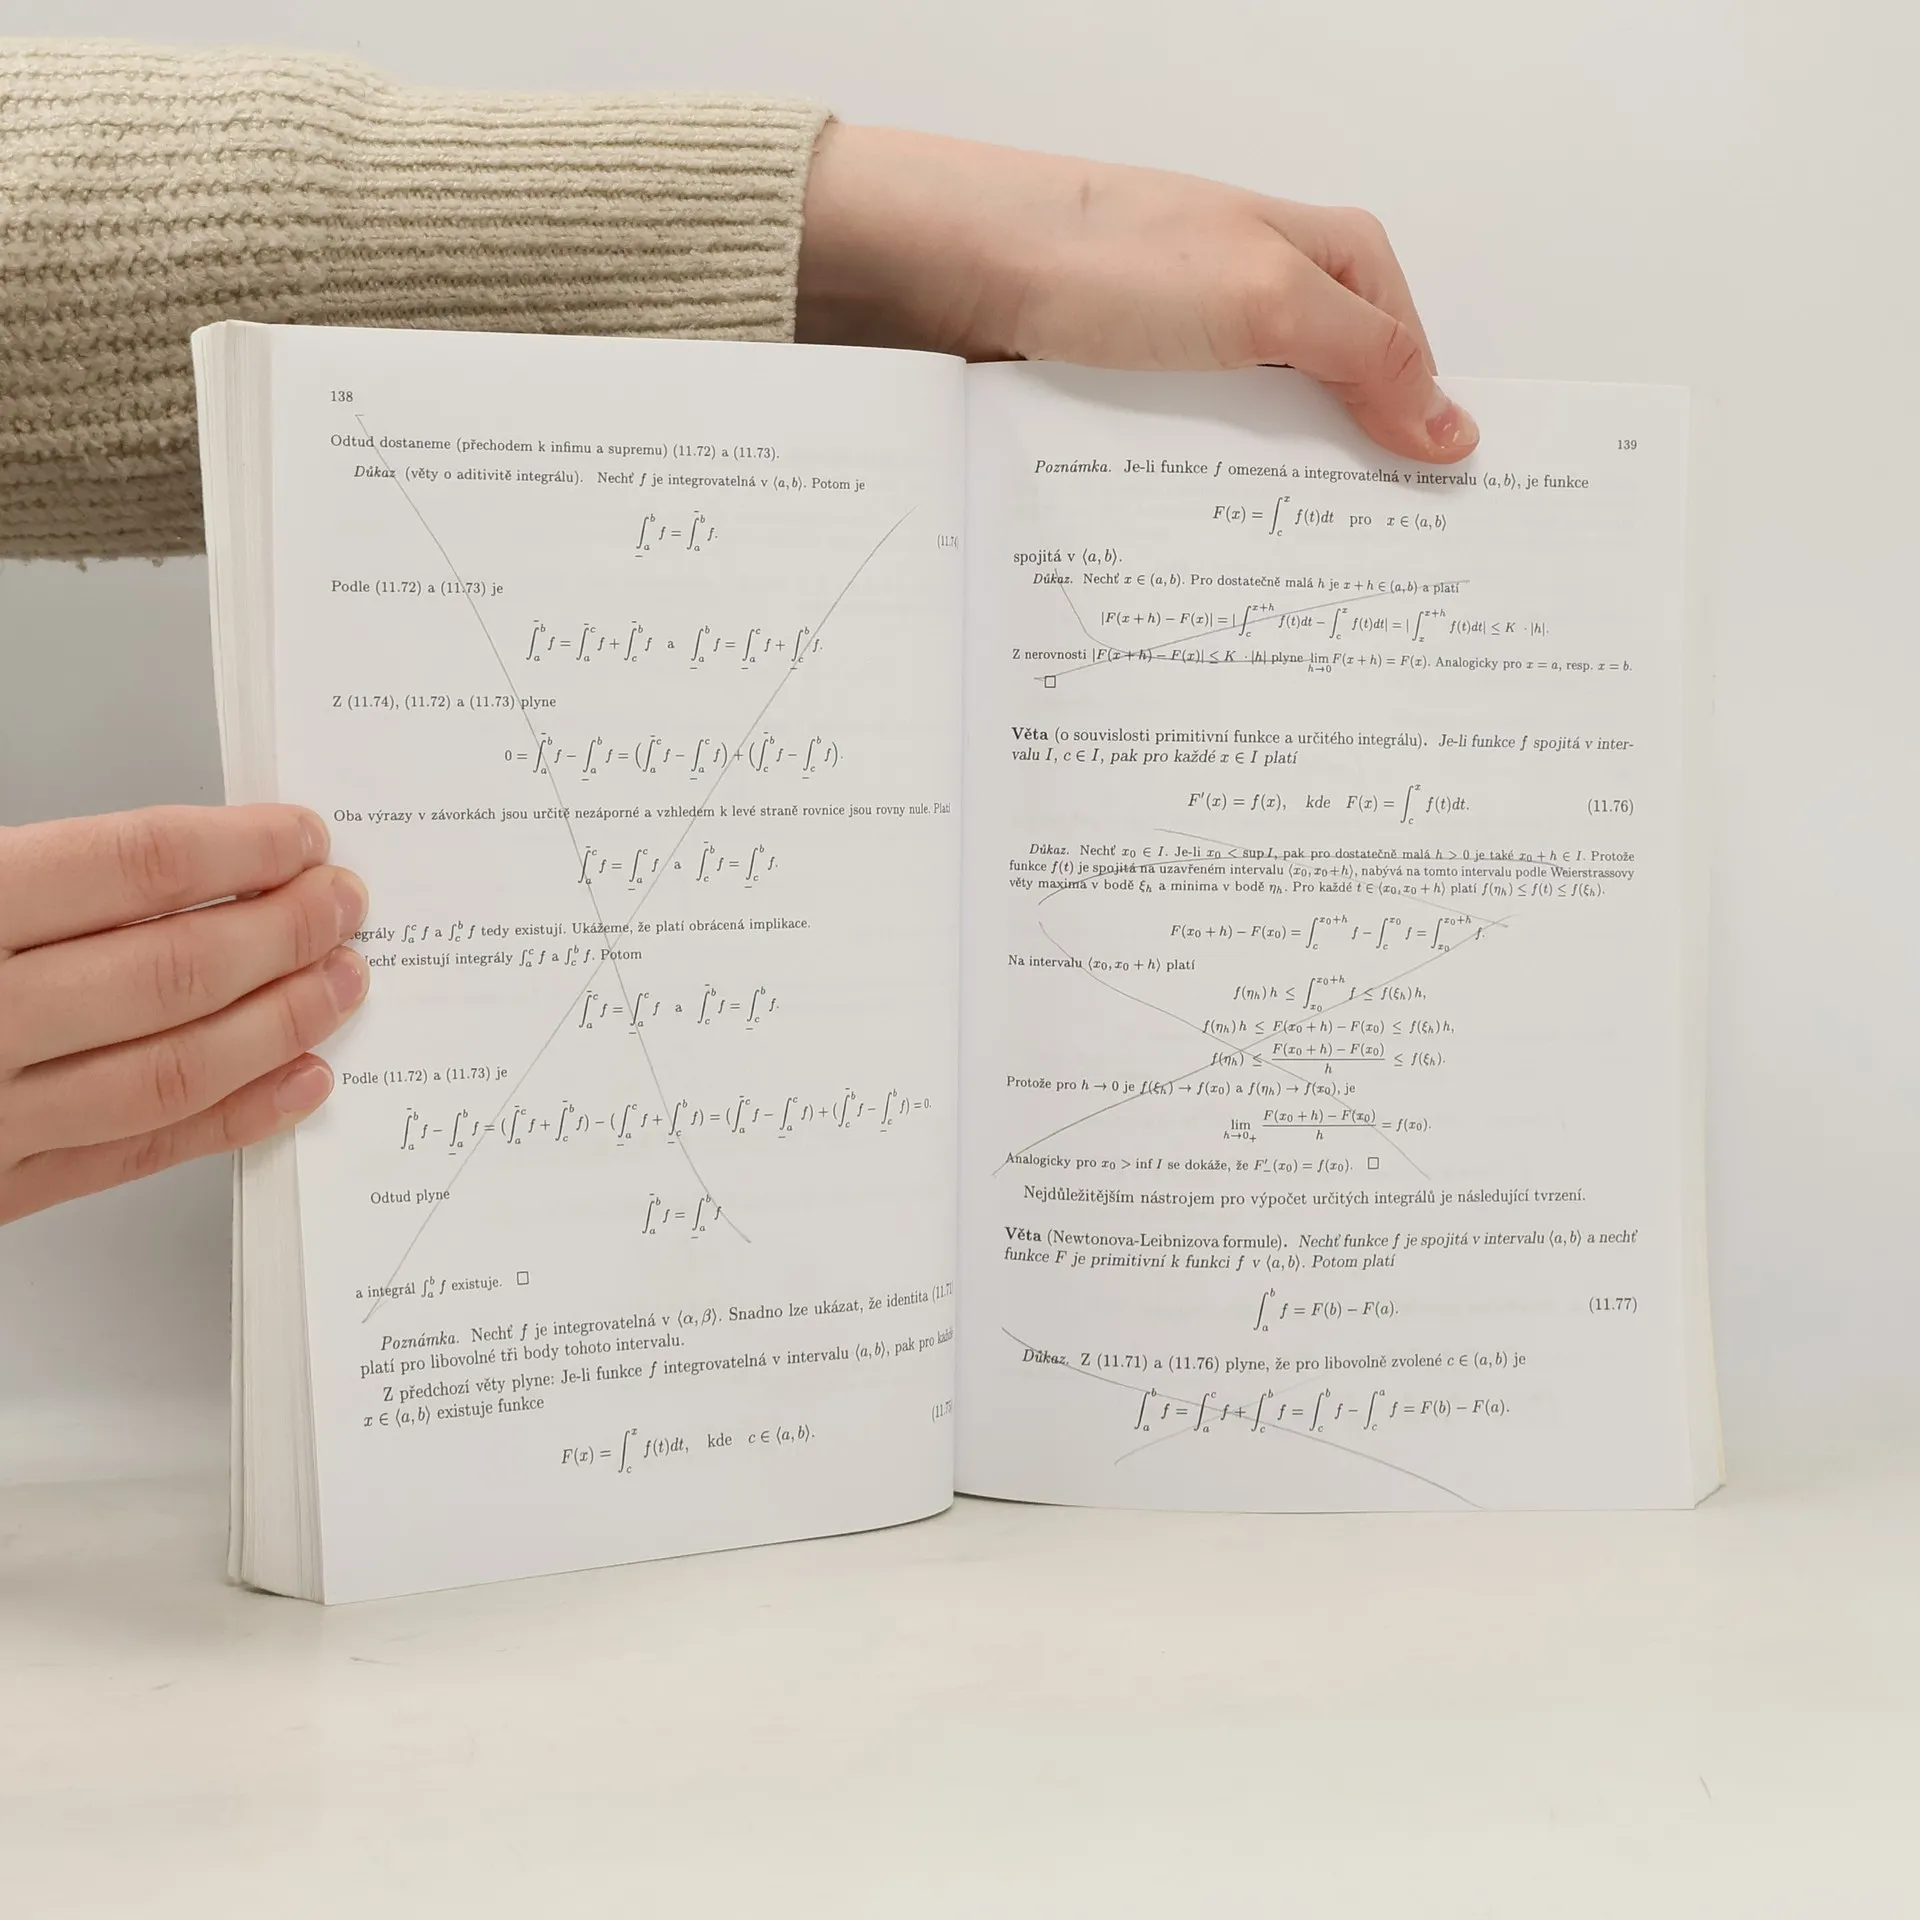 138
Odtud dostaneme (přechodem k infimu a supremu) (11.72) a (11.73).
Důkaz (věty o aditivitě integrálu). Nechť f je integrovatelná v ⟨a, b⟩. Potom je
\underline{∫}_a^b f = \bar{∫}_a^b f.
Podle (11.72) a (11.73) je
\bar{∫}_a^b f = \bar{∫}_a^c f + \bar{∫}_c^b f a \underline{∫}_a^b f = \underline{∫}_a^c f + \underline{∫}_c^b f.
Z (11.74), (11.72) a (11.73) plyne
0 = \bar{∫}_a^b f − \underline{∫}_a^b f = (\bar{∫}_a^c f − \underline{∫}_a^c f) + (\bar{∫}_c^b f − \underline{∫}_c^b f).
Oba výrazy v závorkách jsou určitě nezáporné a vzhledem k levé straně rovnice jsou rovny nule. Platí
\bar{∫}_a^c f = \underline{∫}_a^c f a \bar{∫}_c^b f = \underline{∫}_c^b f.
∫_a^c f a ∫_c^b f tedy existují. Ukážeme, že platí obrácená implikace.
existují integrály ∫_a^c f a ∫_c^b f. Potom
\bar{∫}_a^c f = \underline{∫}_a^c f a \bar{∫}_c^b f = \underline{∫}_c^b f.
Podle (11.72) a (11.73) je
\bar{∫}_a^b f − \underline{∫}_a^b f = (\bar{∫}_a^c f + \bar{∫}_c^b f) − (\underline{∫}_a^c f + \underline{∫}_c^b f) = (\bar{∫}_a^c f − \underline{∫}_a^c f) + (\bar{∫}_c^b f − \underline{∫}_c^b f) = 0.
Odtud plyne
\bar{∫}_a^b f = \underline{∫}_a^b f
a integrál ∫_a^b f existuje. □
Poznámka. Nechť f je integrovatelná v ⟨α, β⟩. Snadno lze ukázat, že identita
platí pro libovolné tři body tohoto intervalu.
Z předchozí věty plyne: Je-li funkce f integrovatelná v intervalu ⟨a, b⟩, pak pro každé
x ∈ ⟨a, b⟩ existuje funkce
F(x) = ∫_c^x f(t)dt, kde c ∈ ⟨a, b⟩.
139
Poznámka. Je-li funkce f omezená a integrovatelná v intervalu ⟨a, b⟩, je funkce
F(x) = ∫_c^x f(t)dt pro x ∈ ⟨a, b⟩
spojitá v ⟨a, b⟩.
Důkaz. Nechť x ∈ (a, b). Pro dostatečně malá h je x + h ∈ (a, b) a platí
|F(x + h) − F(x)| = |∫_c^{x+h} f(t)dt − ∫_c^x f(t)dt| = |∫_x^{x+h} f(t)dt| ≤ K · |h|.
Z nerovnosti |F(x + h) − F(x)| ≤ K · |h| plyne lim_{h→0} F(x + h) = F(x). Analogicky pro x = a, resp. x = b.
□
Věta (o souvislosti primitivní funkce a určitého integrálu). Je-li funkce f spojitá v inter-
valu I, c ∈ I, pak pro každé x ∈ I platí
F′(x) = f(x), kde F(x) = ∫_c^x f(t)dt. (11.76)
Důkaz. Nechť x₀ ∈ I. Je-li x₀ < sup I, pak pro dostatečně malá h > 0 je také x₀ + h ∈ I. Protože
funkce f(t) je spojitá na uzavřeném intervalu ⟨x₀, x₀+h⟩, nabývá na tomto intervalu podle Weierstrassovy
věty maxima v bodě ξ_h a minima v bodě η_h. Pro každé t ∈ ⟨x₀, x₀ + h⟩ platí f(η_h) ≤ f(t) ≤ f(ξ_h).
F(x₀ + h) − F(x₀) = ∫_c^{x₀+h} f − ∫_c^{x₀} f = ∫_{x₀}^{x₀+h} f.
Na intervalu ⟨x₀, x₀ + h⟩ platí
f(η_h) h ≤ ∫_{x₀}^{x₀+h} f ≤ f(ξ_h) h,
f(η_h) h ≤ F(x₀ + h) − F(x₀) ≤ f(ξ_h) h,
f(η_h) ≤ \frac{F(x₀ + h) − F(x₀)}{h} ≤ f(ξ_h).
Protože pro h → 0 je f(ξ_h) → f(x₀) a f(η_h) → f(x₀), je
lim_{h→0₊} \frac{F(x₀ + h) − F(x₀)}{h} = f(x₀).
Analogicky pro x₀ > inf I se dokáže, že F′₋(x₀) = f(x₀). □
Nejdůležitějším nástrojem pro výpočet určitých integrálů je následující tvrzení.
Věta (Newtonova-Leibnizova formule). Nechť funkce f je spojitá v intervalu ⟨a, b⟩ a nechť
funkce F je primitivní k funkci f v ⟨a, b⟩. Potom platí
∫_a^b f = F(b) − F(a). (11.77)
Důkaz. Z (11.71) a (11.76) plyne, že pro libovolně zvolené c ∈ (a, b) je
∫_a^b f = ∫_a^c f + ∫_c^b f = ∫_c^b f − ∫_c^a f = F(b) − F(a).